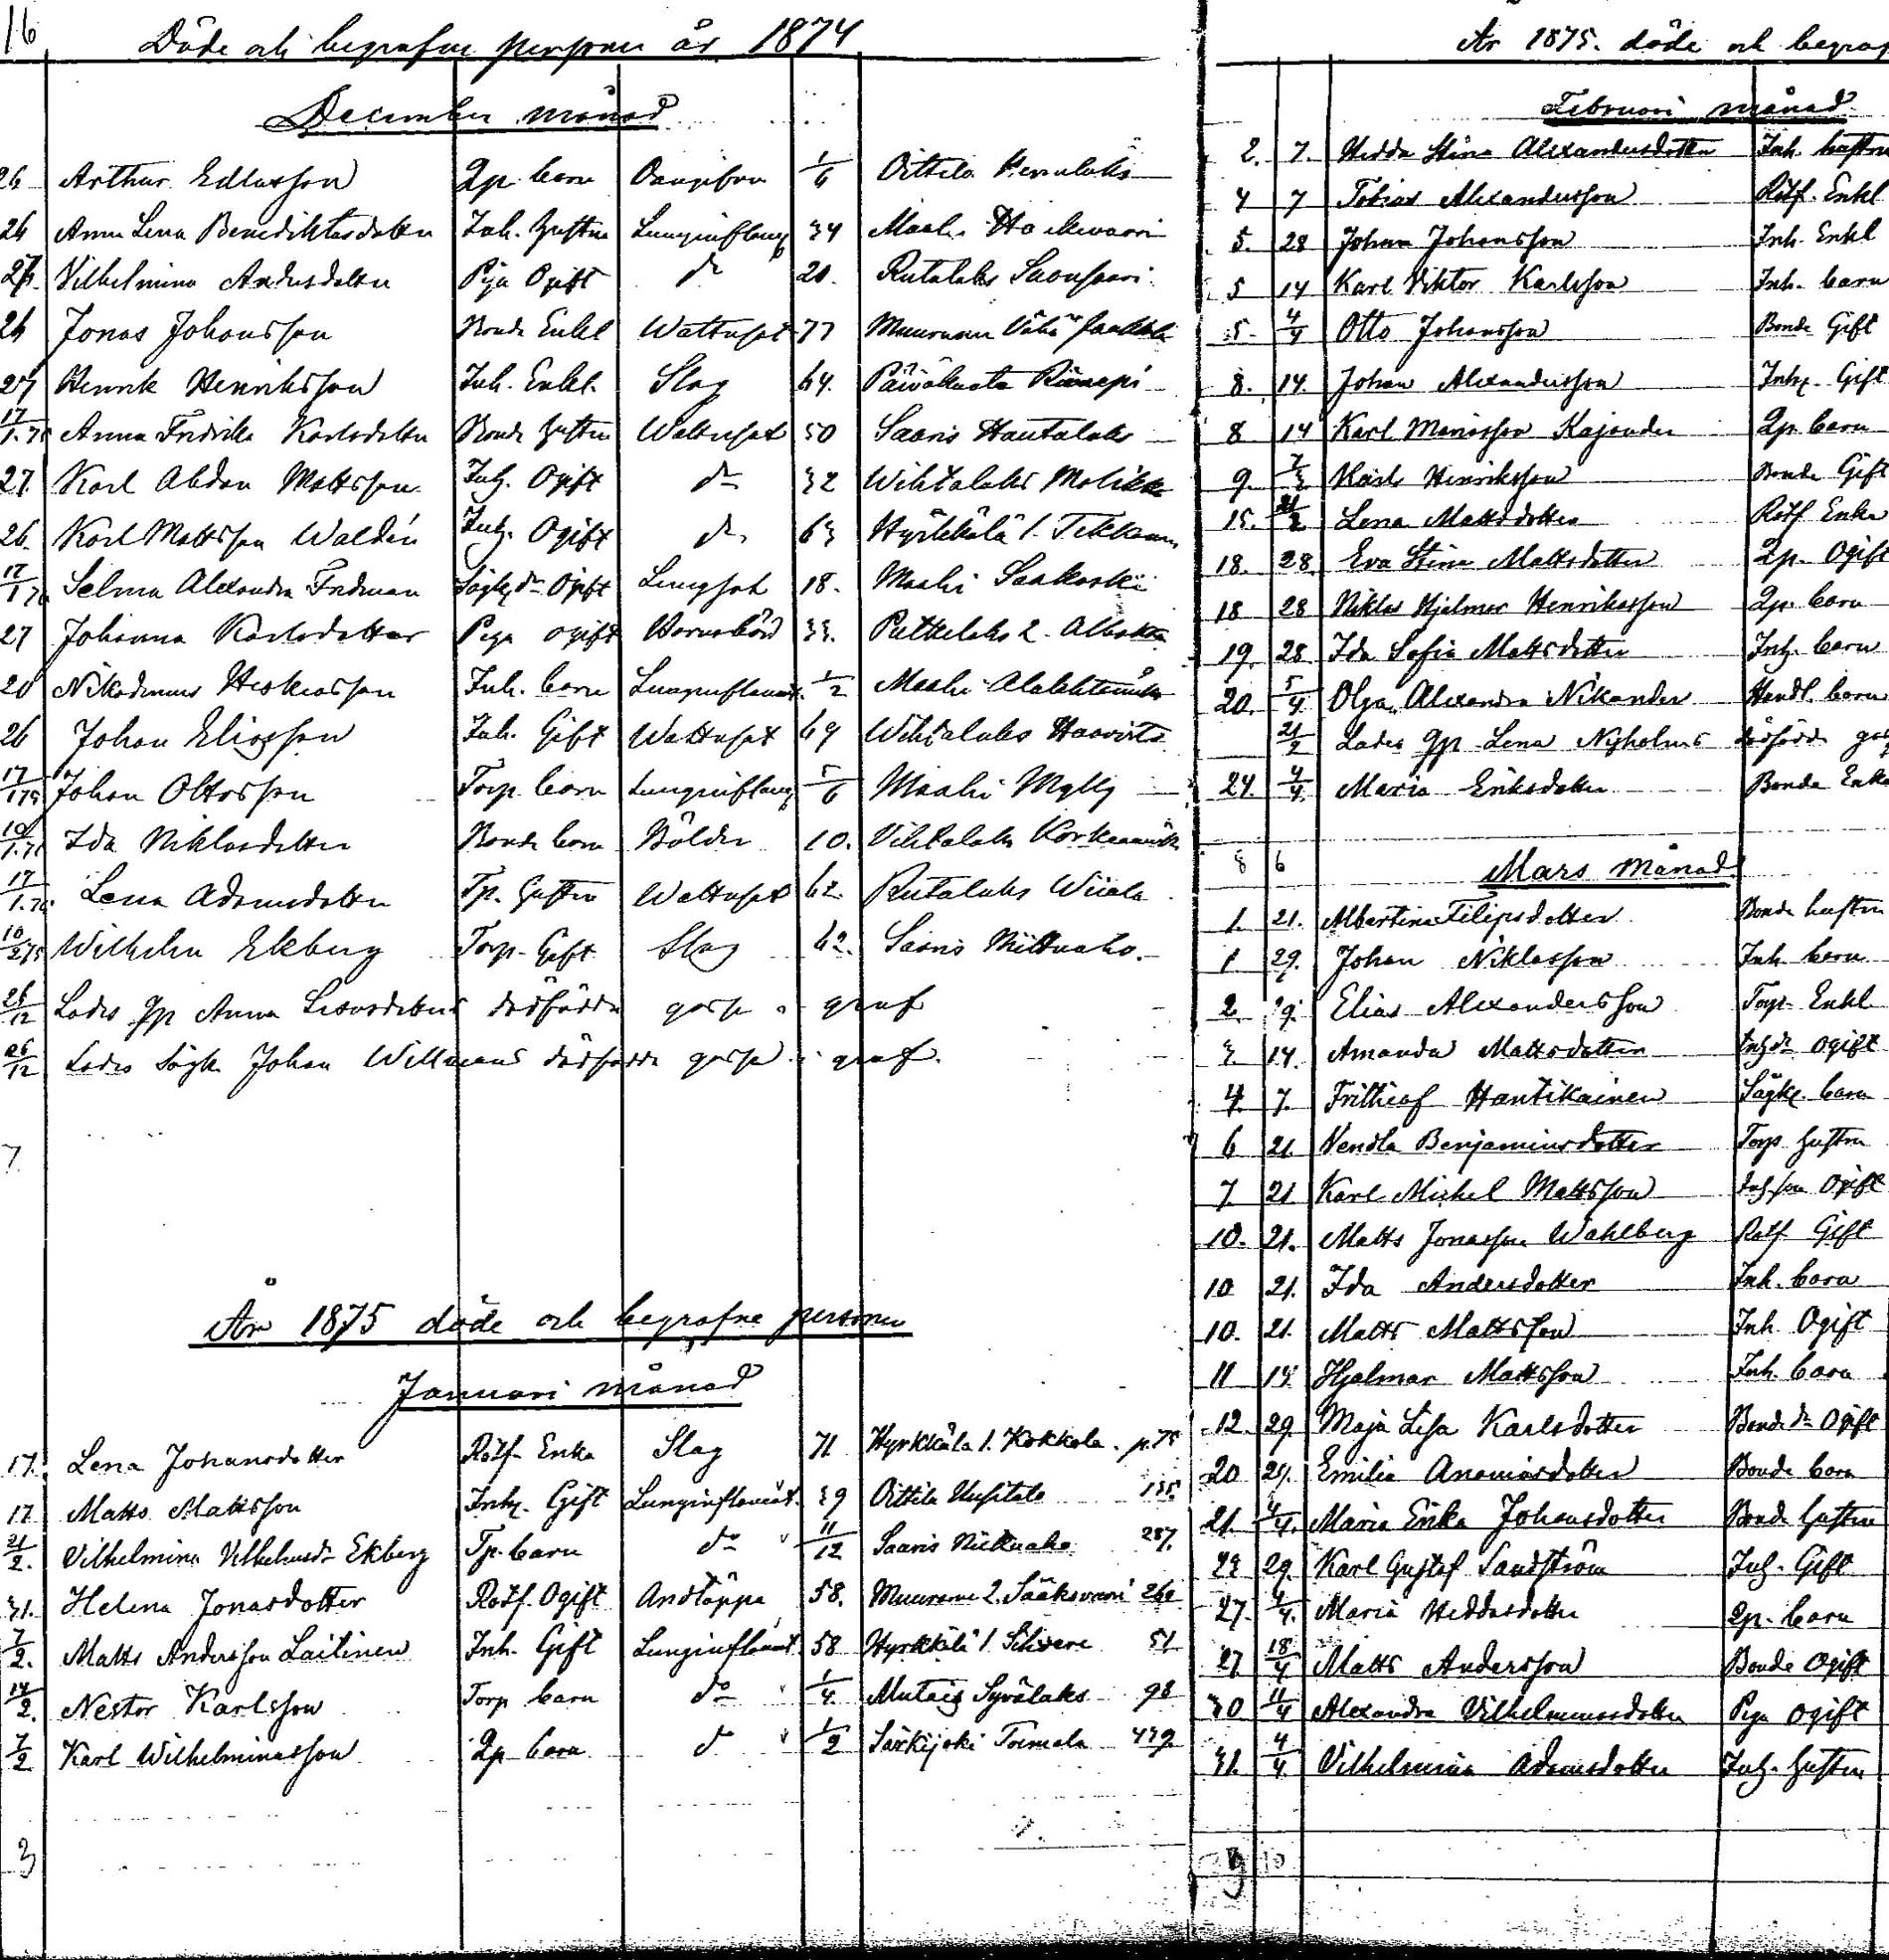 16
Döde och begrafne personer år 1874
December månad
26 Arthur Edlasson Qp. barn Oangifven 1/6 Oittila
26 Anna Lena Benediktsdotter Inh. hustru Lunginflamm 34 Maahi
26. Vilhelmina Andersdotter Piga Ogift do 20. Rutalaks
26 Jonas Johansson Bonde Enkl Wattusot 77 Muurame
27 Henrik Henriksson Inh. Enkl. Slag 64. Päiväkunta
17/1.75 Anna Fredrika Karlsdotter Bonde hustru Wattusot 50 Saaris Hautalaks
27. Karl Abdon Mattsson Inh. Ogift do 32 Wihtalaks
26. Karl Mattsson Waldén Inh. Ogift do 63 Hyrkkälä 1.
17/1 75 Selma Alexandra Fredman Ogift Lungsot 18. Maahi Saakoski
27 Johanna Karlsdotter Piga ogift Barnsbörd 33. Putkelaks 2.
20 Nikodemus Inh. barn Lunginflammat. 1/2 Maahi
26 Johan Eliasson Inh. Gift Wattusot 69 Wihtalaks
17/1 75 Johan Ottosson Torp. barn Lunginflamm 5/6 Maahi Mylly
10/1.75 Ida Niklasdotter Bonde barn Bölder 10. Vihtalaks
17/1.75 Lena Adamsdotter Tp. hustru Wattusot 62. Rutalaks Wiiala
10/2 75 Wilhelm Ekberg Torp. Gift Slag 62. Saaris
26/12 Lades Qp Anna dödfödde gosse i graf
26/12 Lades Johan Willmans dödfödde gosse i graf.
7
År 1875 döde och begrafne personer
Januari månad
17. Lena Johansdotter Rotf. Enka Slag 71 Hyrkkälä 1. Kokkola. p. 75
17 Matts Mattsson Inh. Gift Lunginflammat. 39 Oittila Uusitalo 135.
21/2. Vilhelmina Vilhelmsdr Ekberg Tp. barn do 11/12 Saaris 287.
31. Helena Jonasdotter Rotf. Ogift Andtäppa 58. Muurame 2. Sääksvuori 260
7/2. Matts Andersson Laitinen Inh. Gift Lunginflammt 58 Hyrkkälä 1. 51
14/2. Nestor Karlsson Torp barn do 1/4 Mutais Syvälaks 98
7/2 Karl Wilhelminasson Qp barn do 1/2 Särkijoki Toimela 439.
3
År 1875. döde och begraf
Februari månad
2. 7. Hedda Stina Alexandersdotter Inh. hustru
4 7 Tobias Alexandersson Rotf. Enkl
5. 28 Johan Johansson Inh. Enkl
5 14 Karl Viktor Karlsson Inh. barn
5. 4/4 Otto Johansson Bonde Gift
8. 14. Johan Alexandersson Inh. Gift
8 14 Karl Mariasson Kajander Qp. barn
9. 7/3 Karl Henriksson Bonde Gift
15. 21/2 Lena Mattsdotter Rotf. Enka
18. 28. Eva Stina Mattsdotter Qp. Ogift
18 28 Niklas Hjalmar Henrikasson Qp. barn
19. 28 Ida Sofia Mattsdotter Inh. barn
20. 5/4. Olga Alexandra Nikander Handl. barn
21/2 Lades Qp Lena Nyholms dödfödde
24. 4/4. Maria Eriksdotter Bonde Enka
8 6
Mars månad
1. 21. Albertina Filipsdotter Bonde hustru
1 29. Johan Niklasson Inh. barn
2. 29. Elias Alexandersson Torp. Enkl
3. 14. Amanda Mattsdotter Inh dr ogift
4. 7. Frithiof Hantikainen barn
6 21. Vendla Benjaminsdotter Torp hustru
7 21 Karl Mickel Mattsson Inh son Ogift
10. 21. Matts Jonasson Wahlberg Rotf Gift
10 21. Ida Andersdotter Inh. barn
10. 21. Matts Mattsson Inh Ogift
11 14 Hjalmar Mattsson Inh. barn
12. 29. Maja Lisa Karlsdotter Bonde dr Ogift
20 29. Emilia Ananiasdotter Bonde barn
21. 4/4. Maria Erika Johansdotter Bonde hustru
23 29. Karl Gustaf Sandström Inh. Gift
27. 4/4. Maria Heddasdotter Qp. barn
27 18/4 Matts Andersson Bonde Ogift
30 11/4 Alexandra Vilhelminasdotter Piga ogift
31. 4/4 Vilhelmina Adamsdotter Inh. hustru
9 10